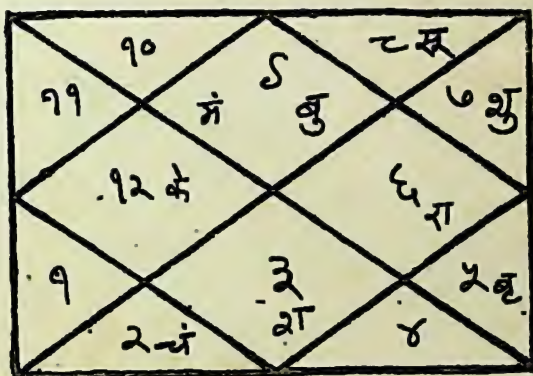 १०
८ सू
११
मं
९
बु
७ शु
१२ के
६
रा
१
३
श
५ बृ
२ चं
४